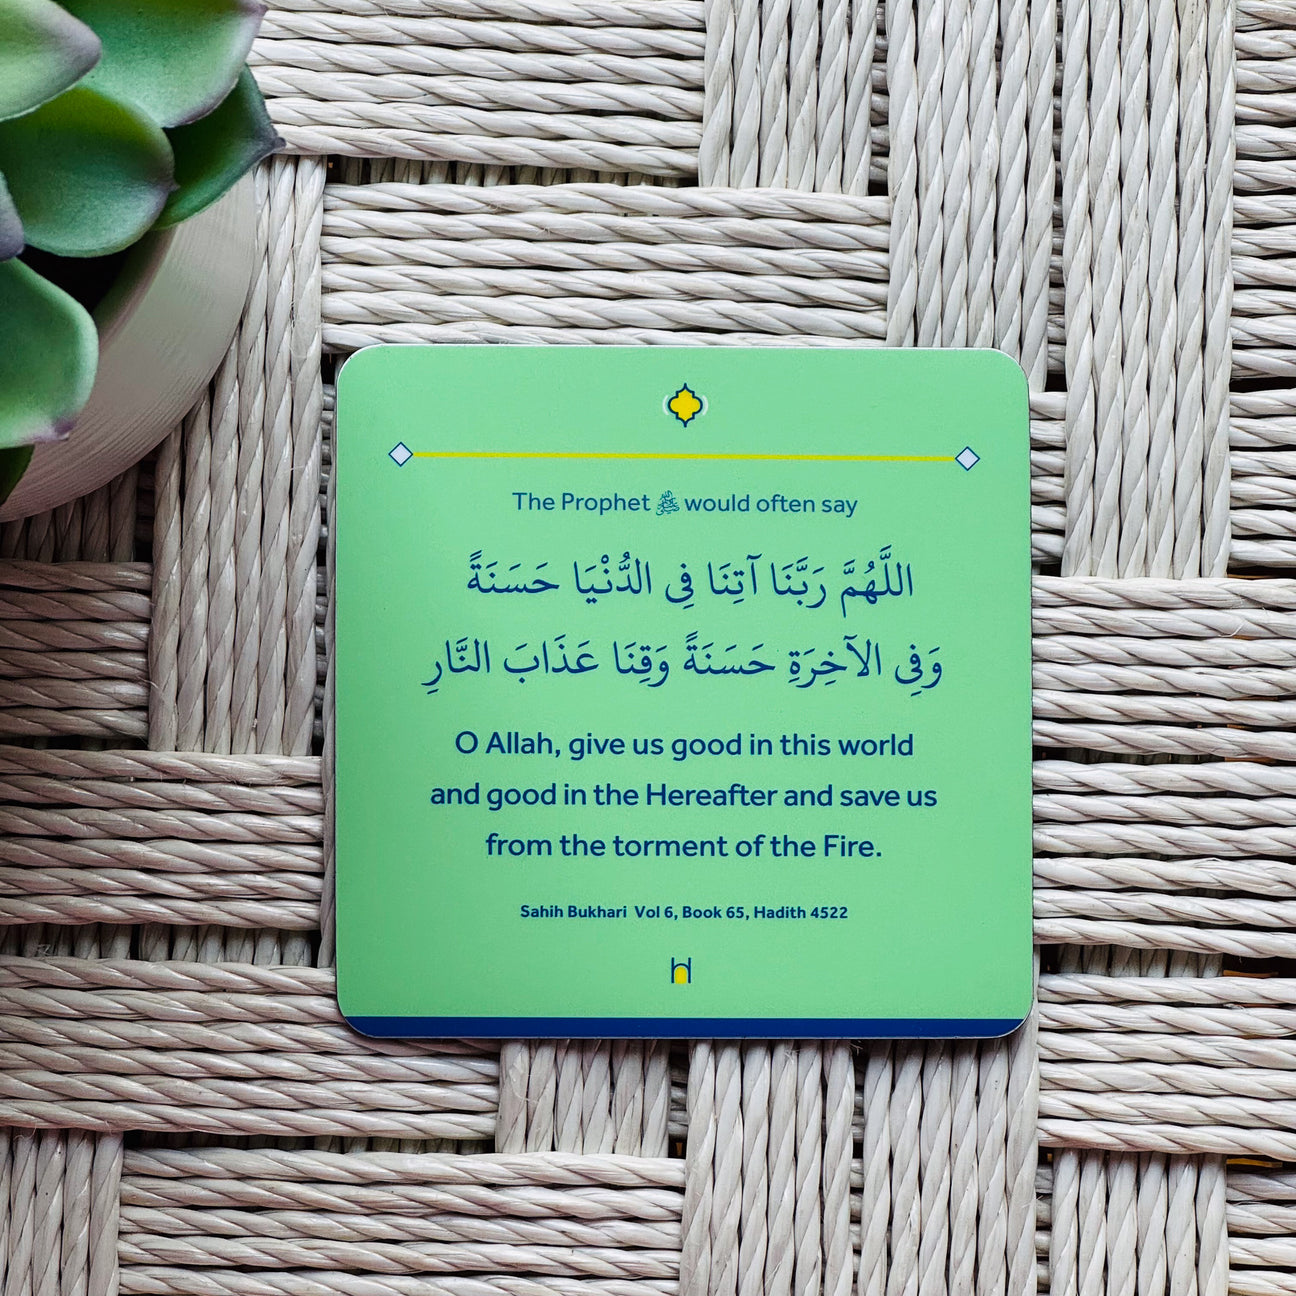 The Prophet ﷺ would often say
اللَّهُمَّ رَبَّنَا آتِنَا فِى الدُّنْيَا حَسَنَةً
وَفِى الآخِرَةِ حَسَنَةً وَقِنَا عَذَابَ النَّارِ
O Allah, give us good in this world
and good in the Hereafter and save us
from the torment of the Fire.
Sahih Bukhari Vol 6, Book 65, Hadith 4522